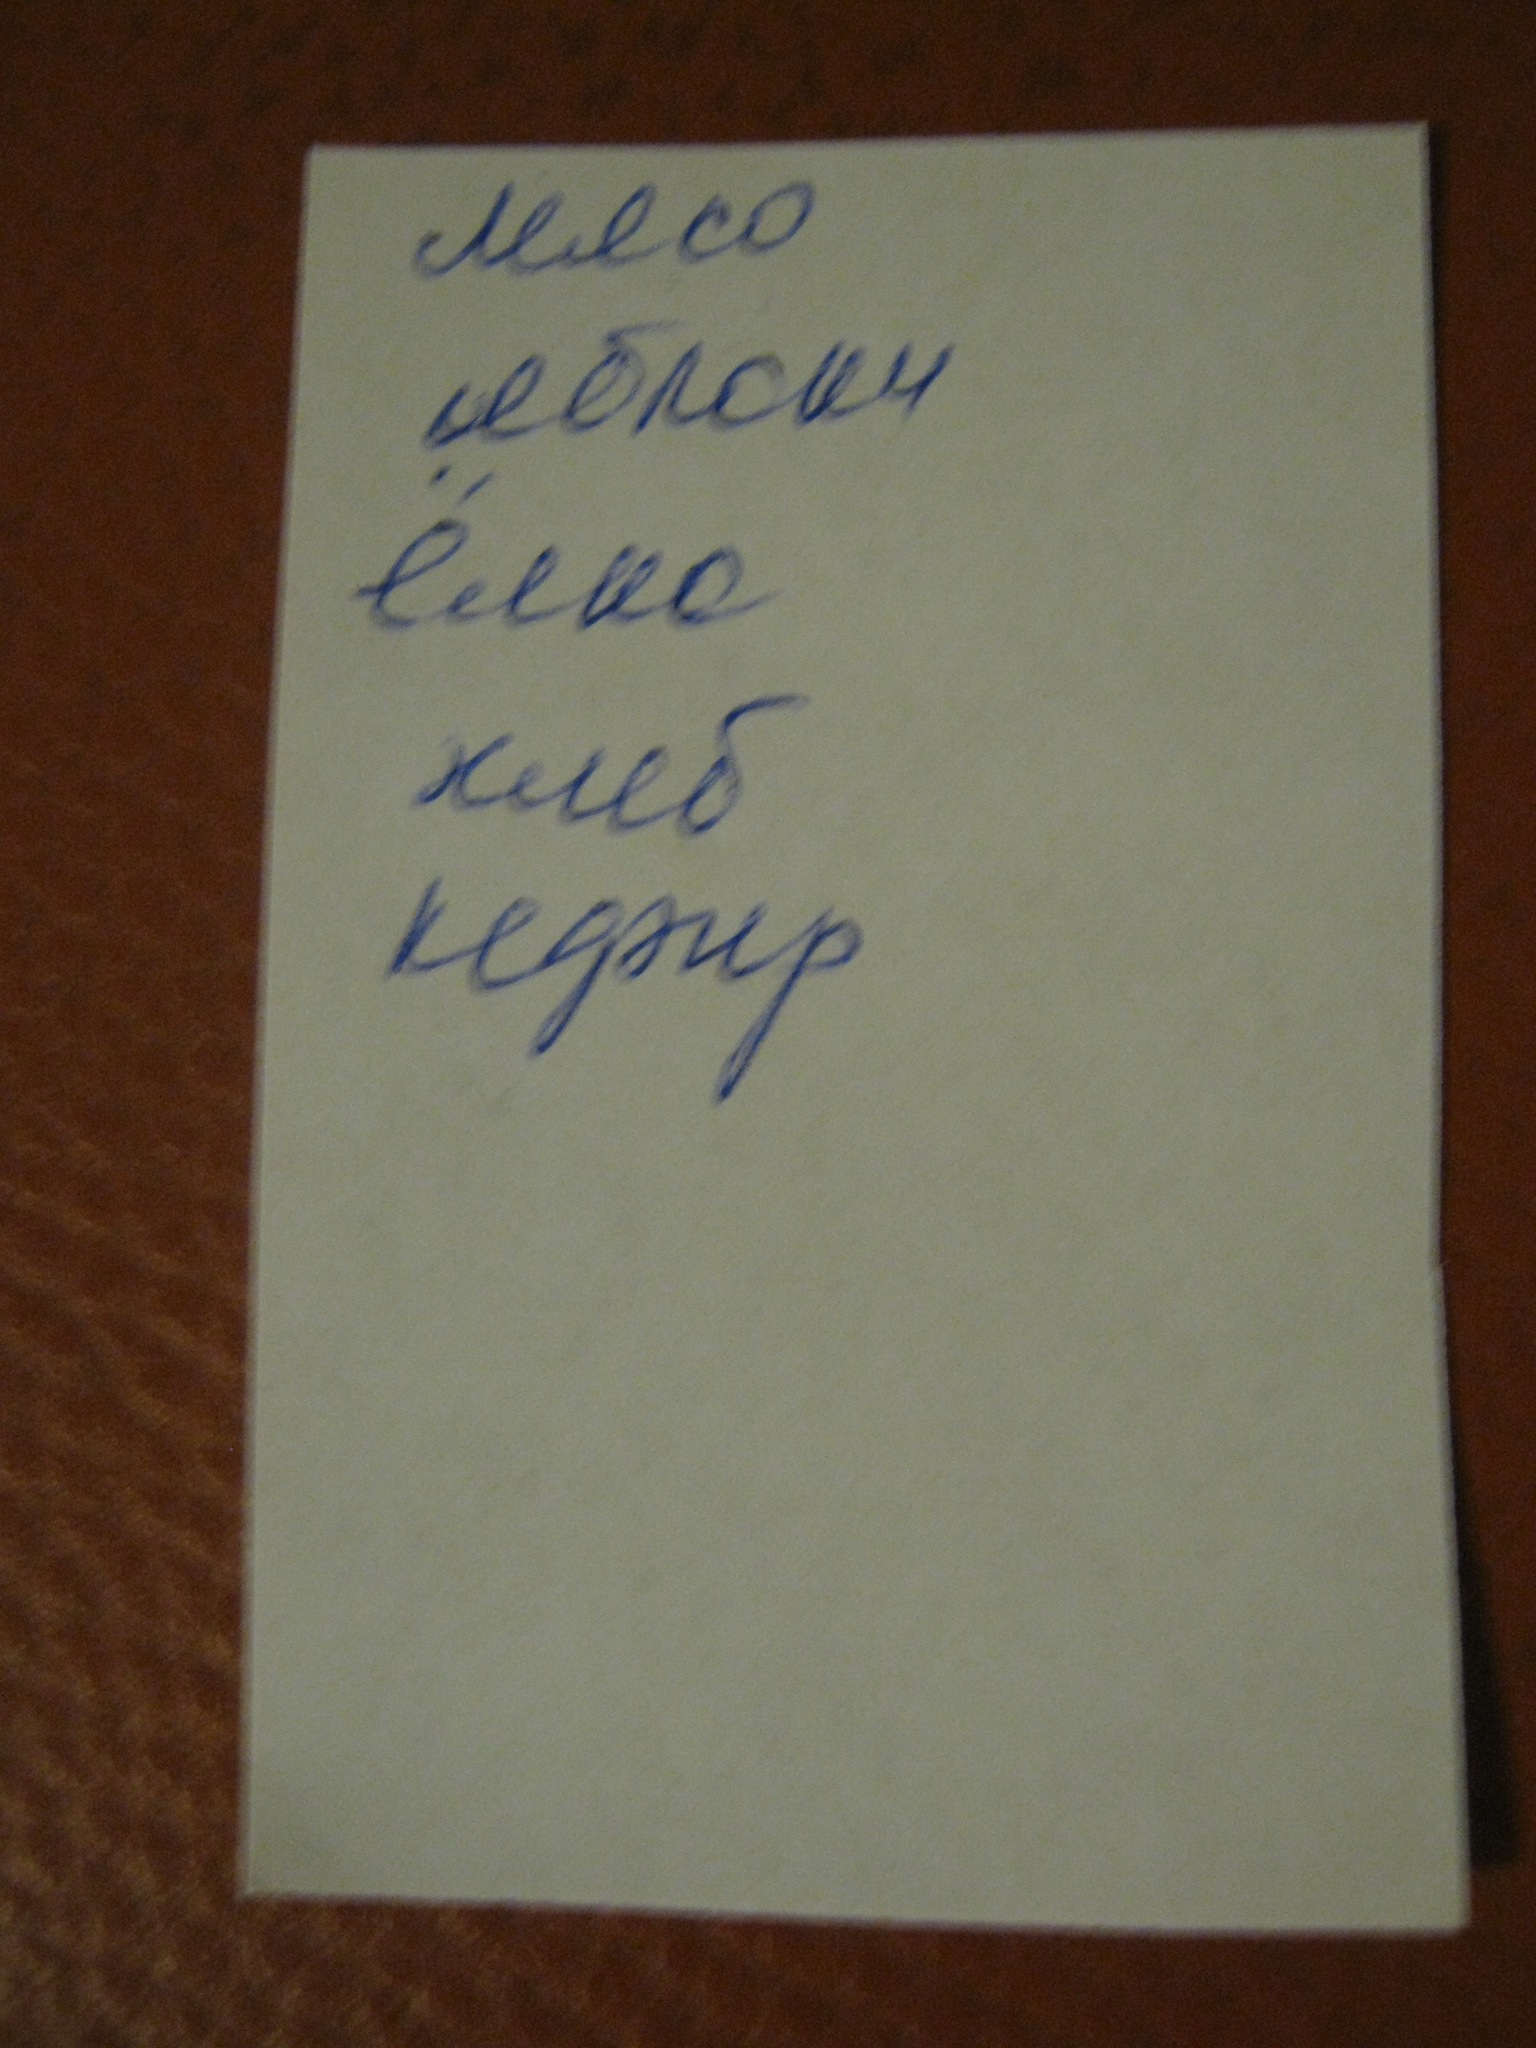 мясо
яблоки
ёлка
хлеб
кефир